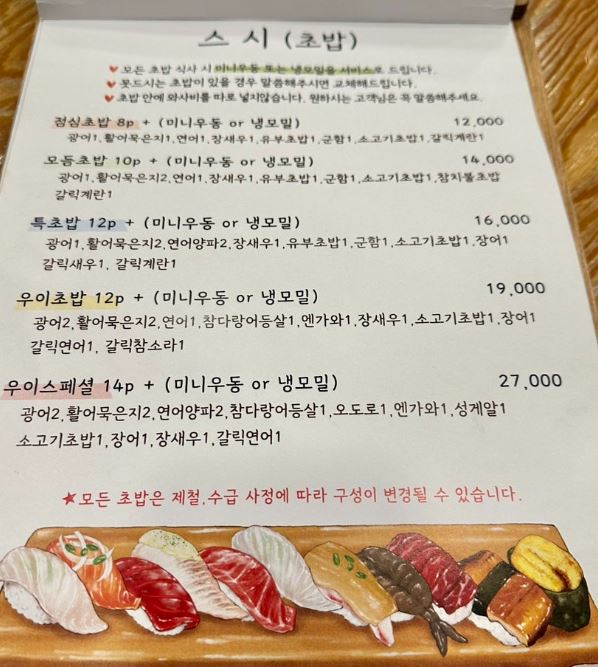 스 시 (초밥)
♥ 모든 초밥 식사 시 미니우동 또는 냉모밀을 서비스로 드립니다.
♥ 못드시는 초밥이 있을 경우 말씀해주시면 교체해드립니다.
♥ 초밥 안에 와사비를 따로 넣지않습니다. 원하시는 고객님은 꼭 말씀해주세요.
점심초밥 8p + (미니우동 or 냉모밀) 12,000
광어1,활어묵은지1,연어1,장새우1,유부초밥1,군함1,소고기초밥1,갈릭계란1
모듬초밥 10p + (미니우동 or 냉모밀) 14,000
광어1,활어묵은지2,연어1,장새우1,유부초밥1,군함1,소고기초밥1,참치불초밥
갈릭계란1
특초밥 12p + (미니우동 or 냉모밀) 16,000
광어1,활어묵은지2,연어양파2,장새우1,유부초밥1,군함1,소고기초밥1,장어1
갈릭새우1, 갈릭계란1
우이초밥 12p + (미니우동 or 냉모밀) 19,000
광어2,활어묵은지2,연어1,참다랑어등살1,엔가와1,장새우1,소고기초밥1,장어1
갈릭연어1, 갈릭참소라1
우이스페셜 14p + (미니우동 or 냉모밀) 27,000
광어2,활어묵은지2,연어양파2,참다랑어등살1,오도로1,엔가와1,성게알1
소고기초밥1,장어1,장새우1,갈릭연어1
★모든 초밥은 제철,수급 사정에 따라 구성이 변경될 수 있습니다.